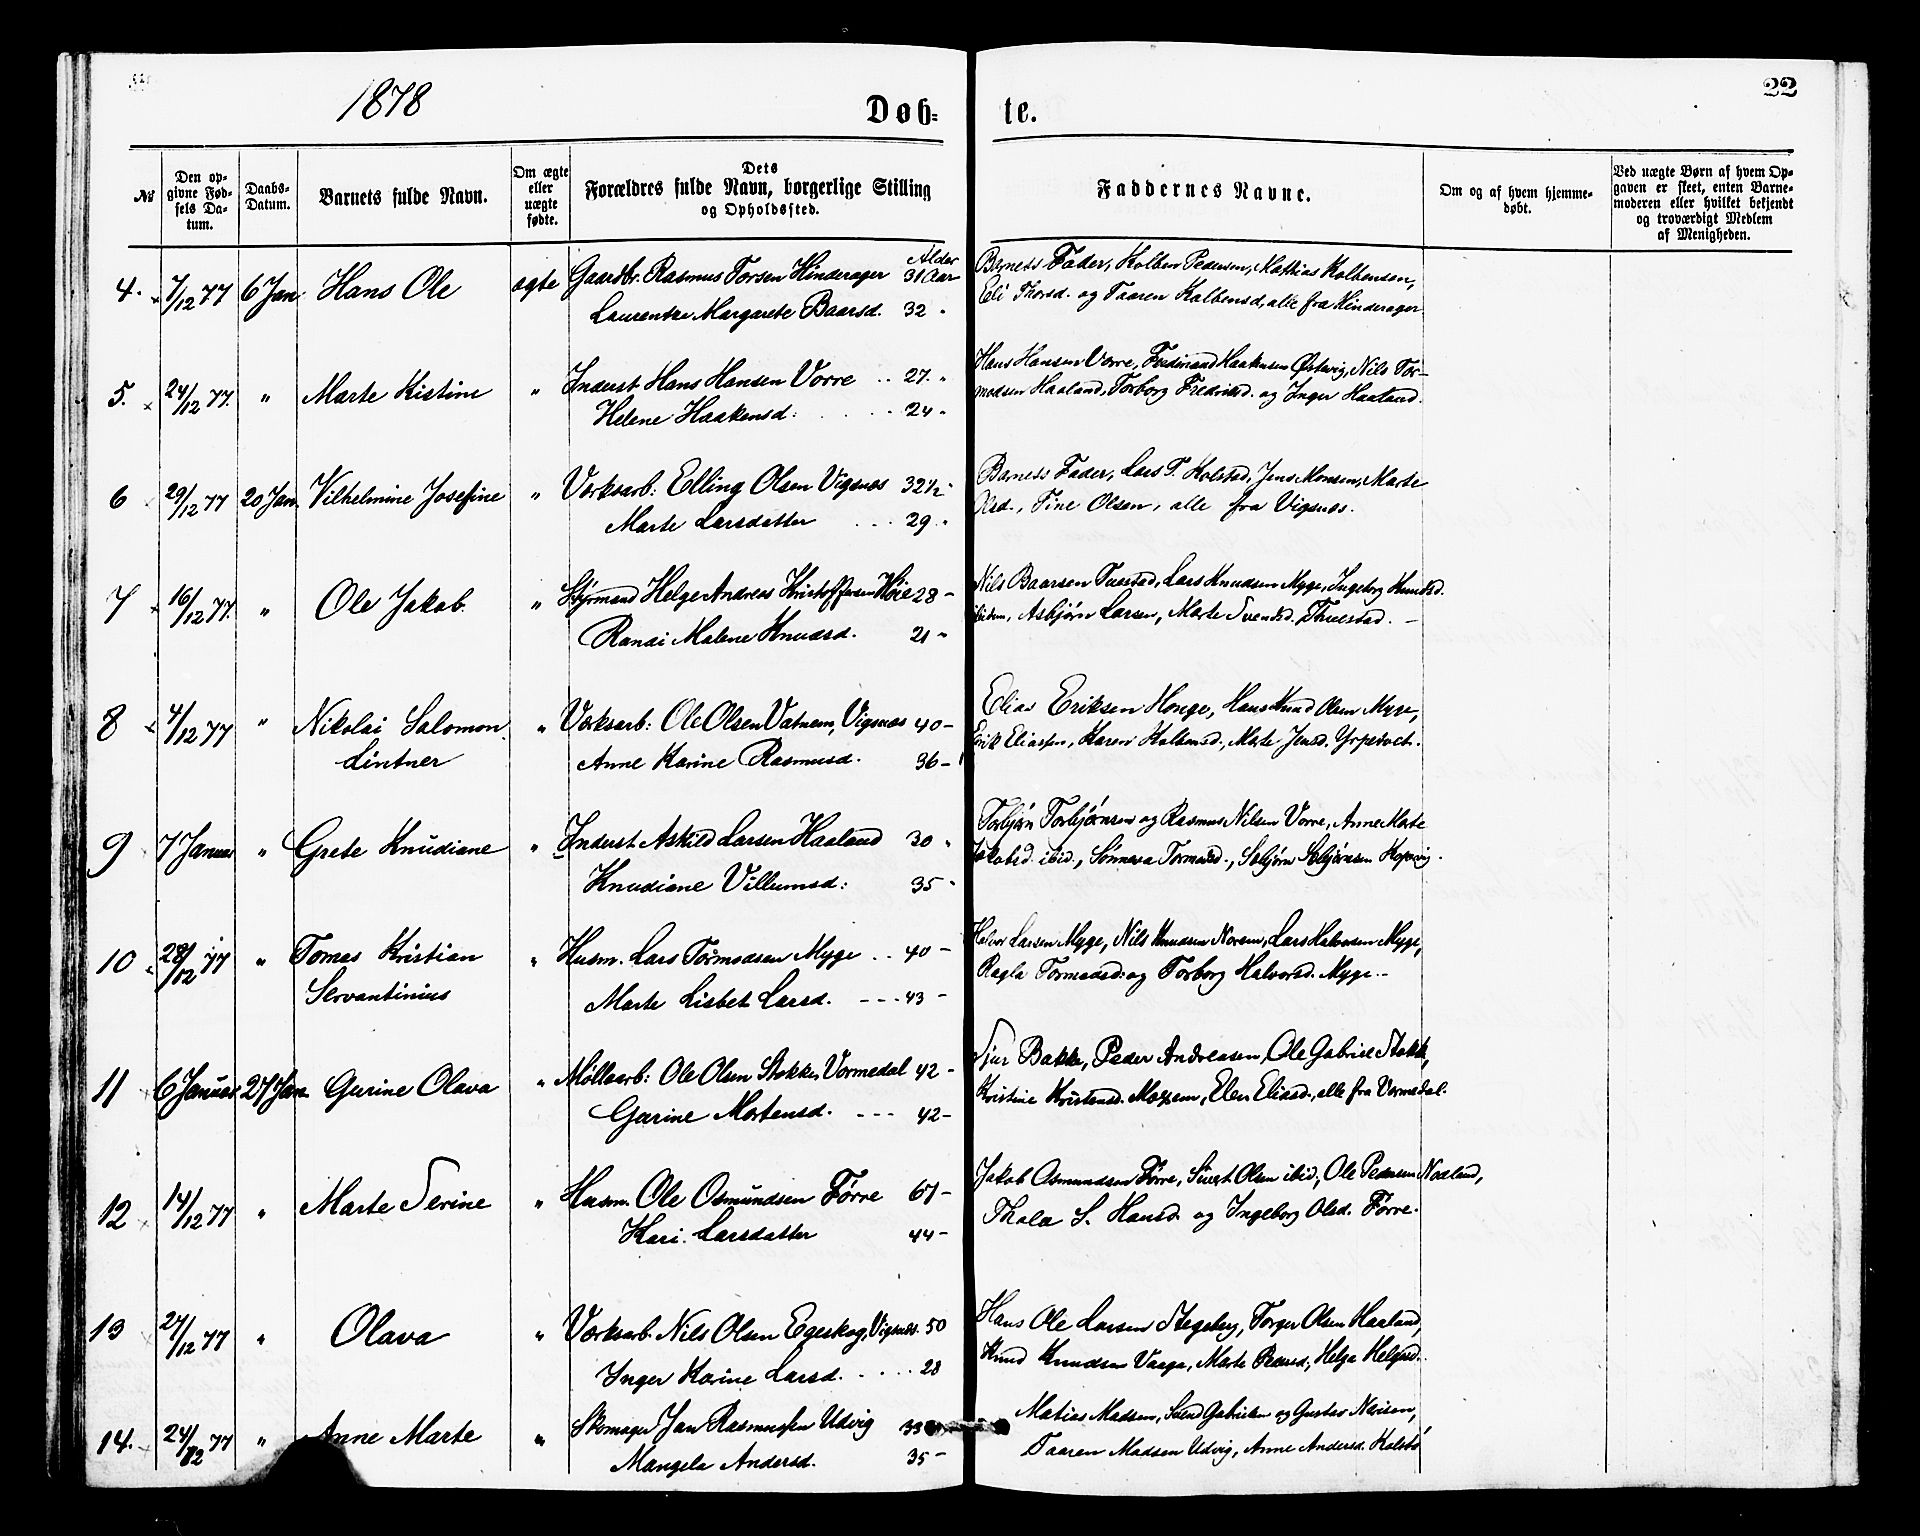 1878
Døb-
te.
22
№
Den op-
givne Fød-
sels Da-
tum.
Daabs-
Datum.
Barnets fulde Navn.
Om ægte
eller
uægte
fødte.
Dets
Forældres fulde Navn, borgerlige Stilling
og Opholdssted.
Faddernes Navne.
Om og af hvem hjemme-
døbt.
Ved uægte Børn af hvem Op-
gaven er skeet, enten Barne-
moderen eller hvilket bekjendt
og troværdigt Medlem
af Menigheden.
Alder
4. 7/12 77 6 Jan. Hans Ole ægte Gaardbr. Rasmus Torsen Hinderager 31 Aar
Laurentze Margarete Baarsd. 32 "
Barnets Fader, Kolben Pedersen, Mathias Kolbensen,
Eli Thorsd. og Taaren Kolbensd, alle fra Hinderager
5. 24/12 77. " Marte Kistine " Inderst Hans Hansen Vorre .. 27. "
Helene Haakensd. 24 "
Hans Hansen Vorre, Ferdinand Haakensen Østvig, Nils Tor-
modsen Haaland, Torborg Fredriksd. og Inger Haaland.
6 29/12 77 20 Jan. Vilhelmine Josefine " Værksarb: Elling Olsen Vigsnæs 32½ "
Marte Larsdatter ... 29. "
Barnets Fader, Lars P. Kolstad, Jens Monsen, Marte
Olsd., Tine Olsen, alle fra Vigsnæs.
7 16/12 77. " Ole Jakob. " Styrmand Helge Andreas Kristoffersen Høie 28 -
Randi Malene Knudsd. 21 "
Nils Baarsen Tuestad, Lars Knudsen Myge, Ingeborg Knudsd.
ibidem, Asbjørn Larsen, Marte Svendsd. Thuestad. -
8 4/12 77 " Nikolai Salomon " Værksarb: Ole Olsen Vatnem, Vigsnæs 40 -
Lintner Anne Karine Rasmusd. 36 -
Elias Eriksen Honge, Hans Knud Olsen Myge,
Erik Eliassen, Karen Kolbensd., Marte Jensd.
9 7 Januar " Grete Knudiane " Inderst Askild Larsen Haaland 30 "
Knudiane Villumsd: 35 "
Torbjørn Torbjørnsen og Rasmus Nilsen Vorre, Anne Marte
Jakobsd. ibid., Sønneva Tormodsd., Sebjørn Sebjørnsen Kopervig.
10 28/12 77 " Tomas Kristian " Husm. Lars Tormodsen Myge .. 40 -
Servantinius Marte Lisbet Larsd. - - - 43 -
Halvor Larsen Myge, Nils Knudsen Norem, Lars Halvorsen Myge,
Ragla Tormodsd. og Torborg Halvorsd. Myge. -
11 6 Januar 27 Jan. Gurine Olava " Møllearb: Ole Olsen Stokke, Vormedal 42 -
Garine Mortensd. - - - 42 -
Sjur Bakke, Peder Andreasen, Ole Gabriel Stokke,
Kristine Kristensd. Moxem, Elen Eliasd., alle fra Vormedal.
12 14/12 77 " Marte Serine " Husm. Ole Osmundsen Førre 67 -
Kari Larsdatter 44 -
Jakob Osmundsen Førre, Sivert Olsen ibid, Ole Pedersen Norland,
Thala S. Hansd. og Ingeborg Olsd. Førre.
13 27/12 77 " Olava " Værksarb. Nils Olsen Egeskog, Vigsnæs. 50
Inger Karine Larsd. .... 28
Hans Ole Larsen Stegeberg, Torger Olsen Haaland,
Knud Knudsen Vaaga, Marte Pedersd., Helga Helgesd.
14. 24/12 77 " Anne Marte " Skomager Jan Rasmussen Udvig 33
Mangela Andersd. 35 -
Matias Madsen, Svend Gabrielsen og Gustav Nilsen,
Taaren Madsen Udvig, Anne Andersd. Kolstø